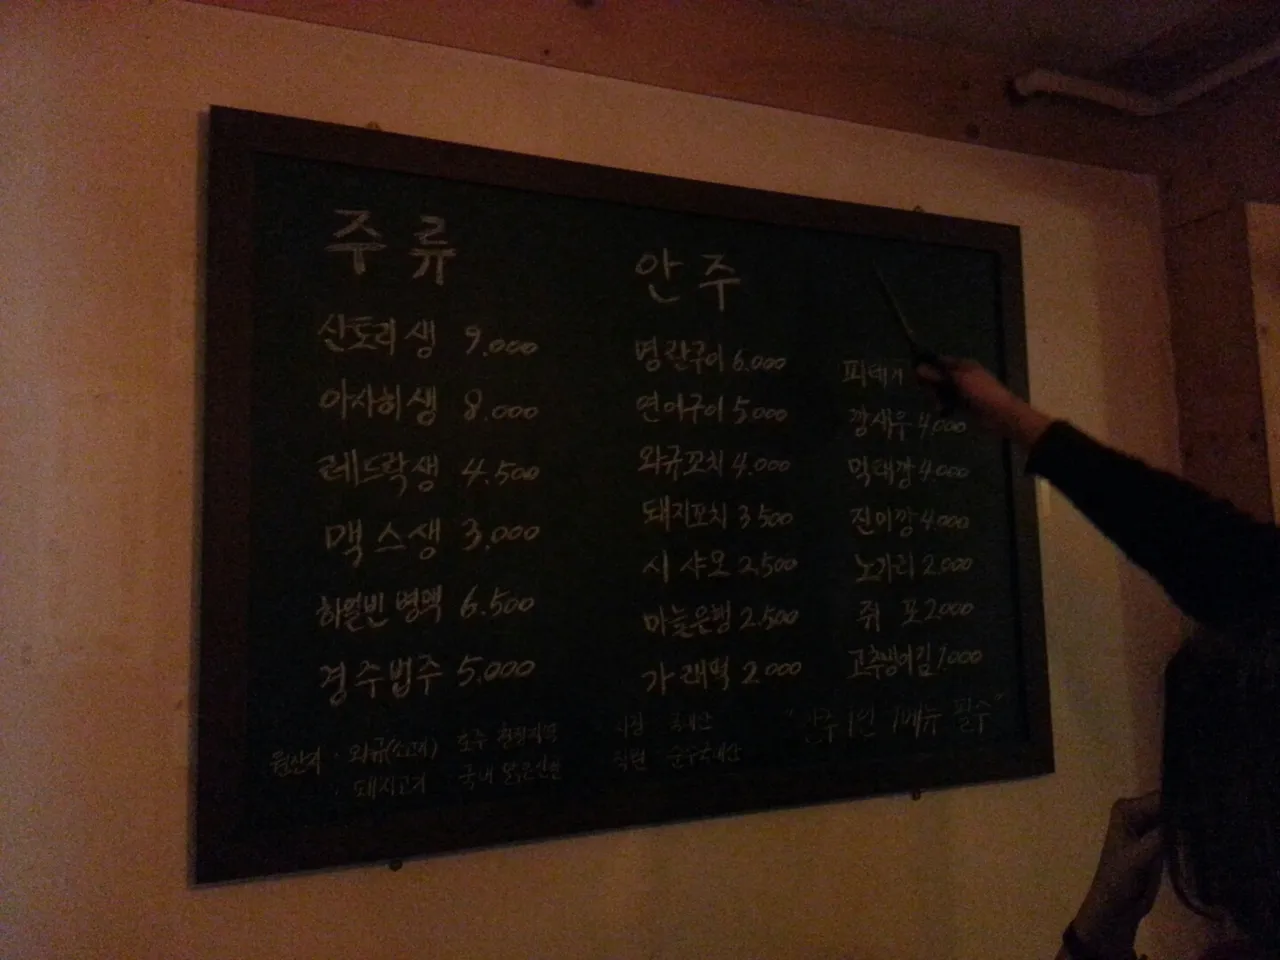 주류
산토리생 9.000
아사히생 8.000
레드락생 4.500
맥스생 3.000
하얼빈 병맥 6.500
경주법주 5.000
안주
명란구이 6.000
연어구이 5.000
와규꼬치 4.000
돼지꼬치 3.500
시샤모 2.500
마늘은행 2.500
가래떡 2.000
깡새우 4.000
먹태깡 4.000
진미깡 4.000
노가리 2.000
쥐포 2.000
고추냉이김 1.000
원산지 · 와규(소고기) 호주 청정지역
· 돼지고기 국내
사장 국내산
직원 순수국내산
"안주 1인 1메뉴 필수"